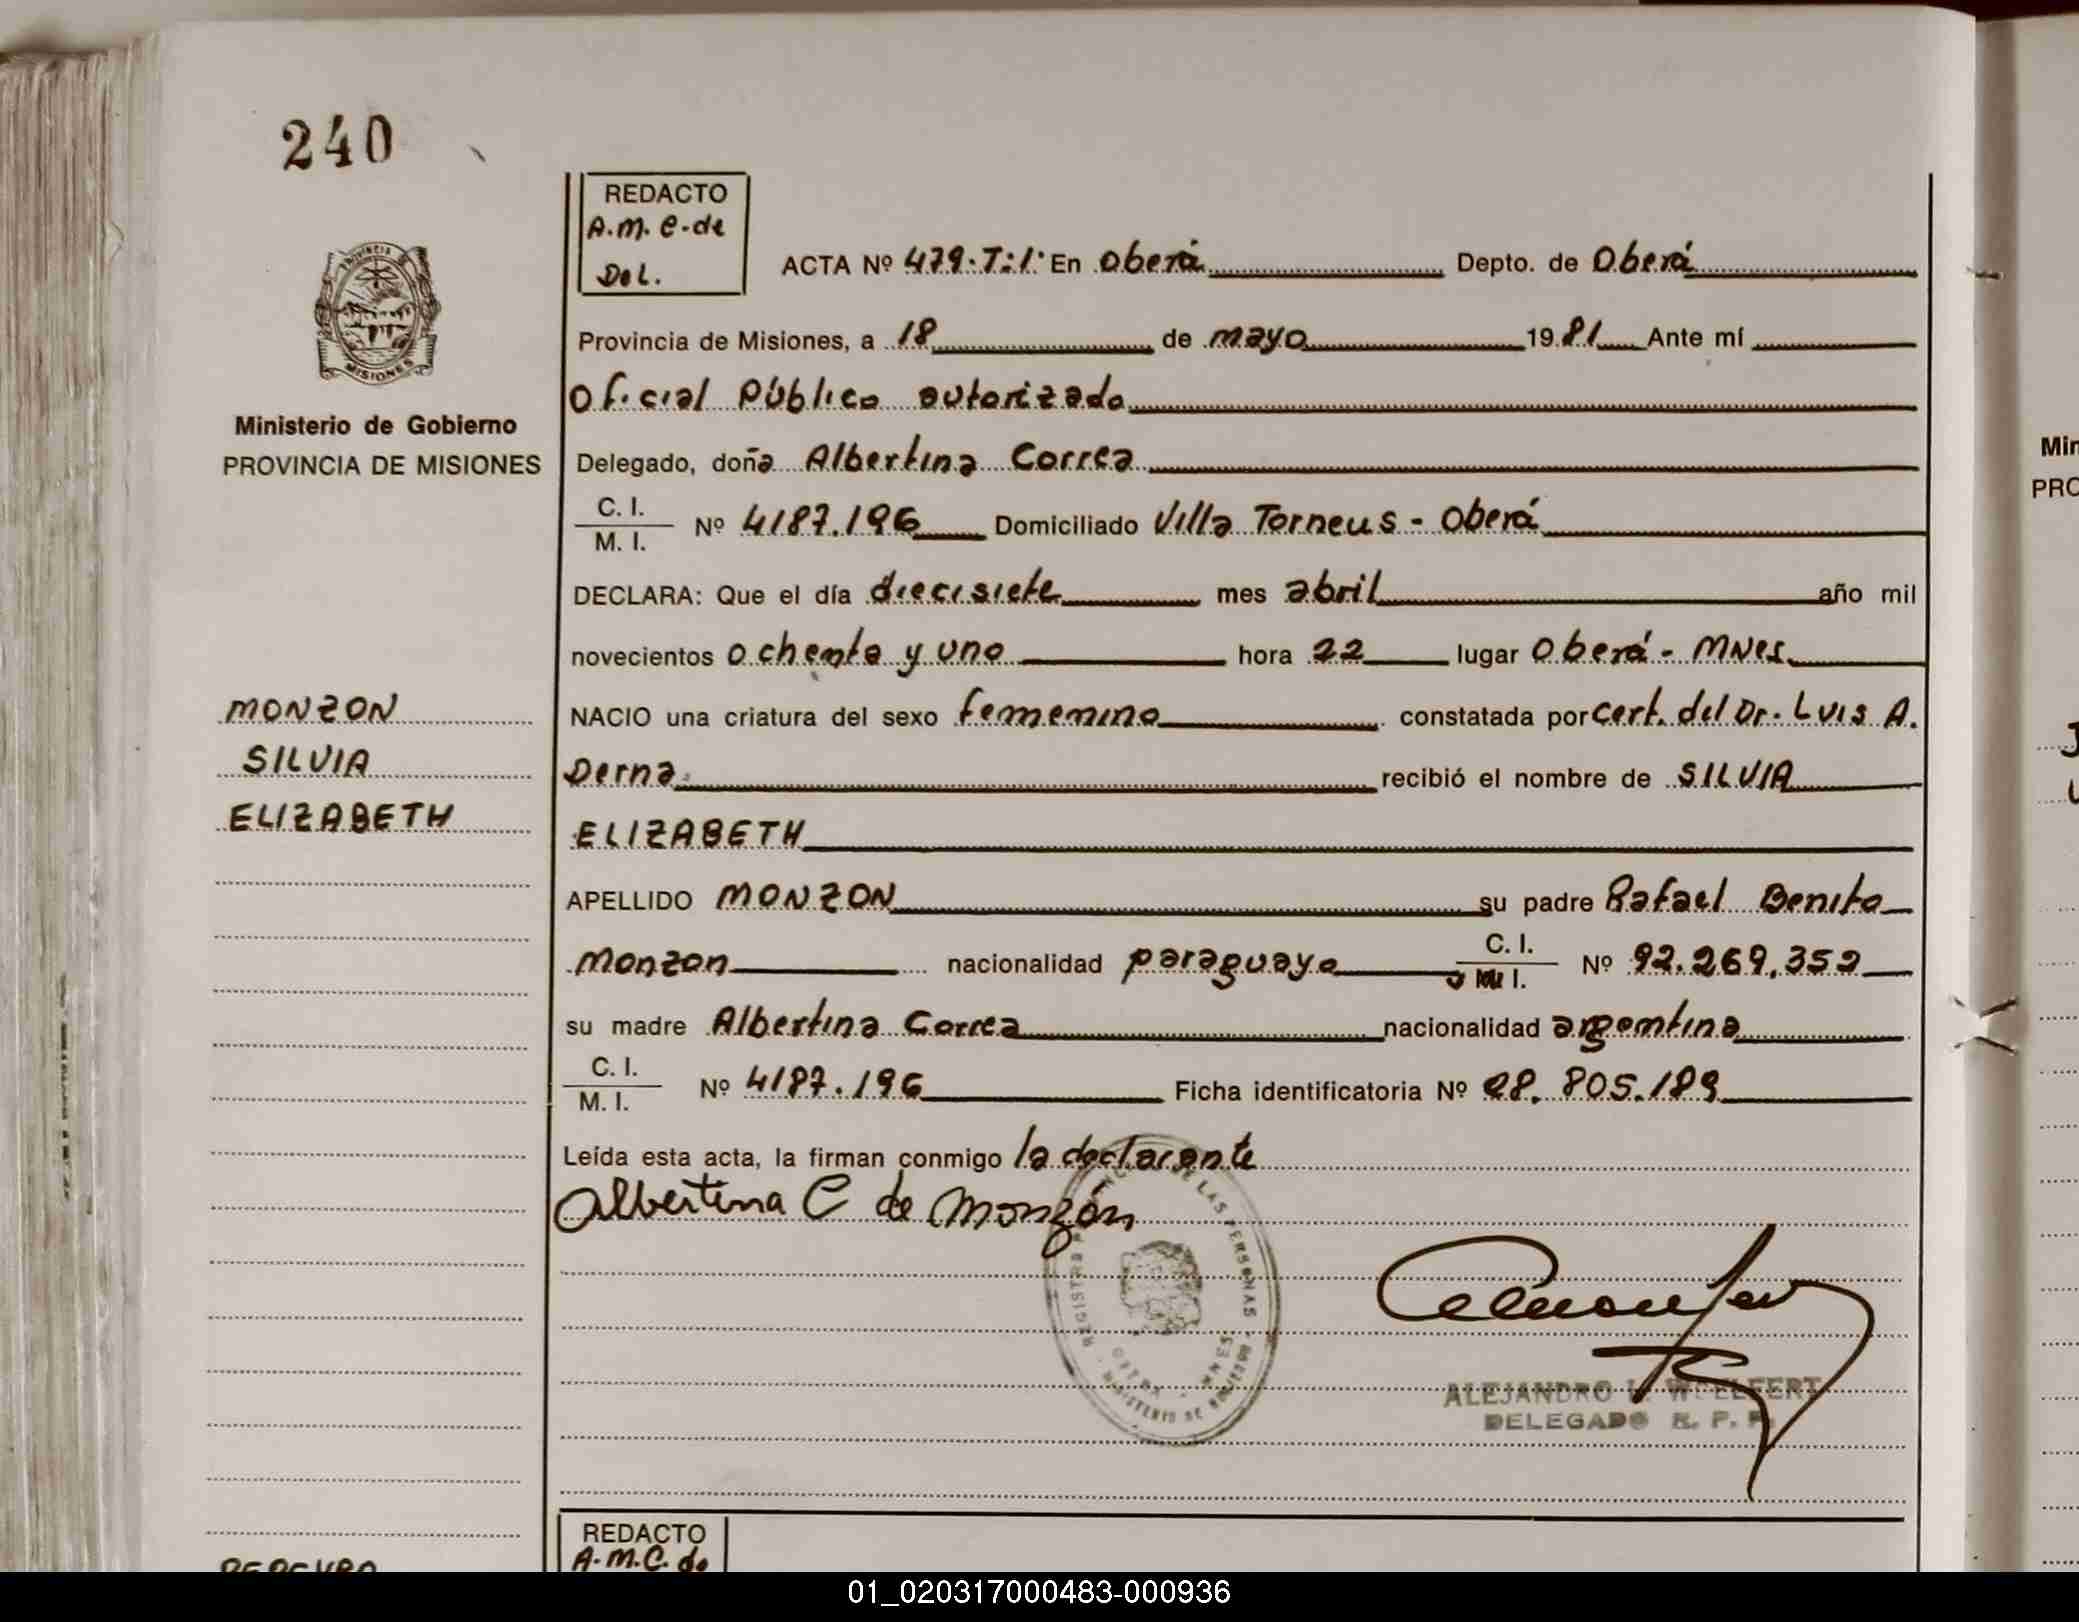 240
REDACTO
A.M.C. de
Del.
ACTA Nº 479. T: I. En Oberá Depto. de Oberá
Provincia de Misiones, a 18 de mayo 1981 Ante mí
Oficial Público autorizado
MISIONES
Ministerio de Gobierno
PROVINCIA DE MISIONES
Delegado, doña Albertina Correa
C. I.
M. I.
Nº 4187.196 Domiciliado Villa Torneus - Oberá
DECLARA: Que el día diecisiete mes abril año mil
novecientos ochenta y uno hora 22 lugar Oberá - Mnes.
MONZON
SILVIA
ELIZABETH
NACIO una criatura del sexo femenino constatada por cert. del Dr. Luis A.
Derna recibió el nombre de SILVIA
ELIZABETH
APELLIDO MONZON su padre Rafael Benito
Monzon nacionalidad paraguaya C. I. Nº 92.269.352
M. I.
su madre Albertina Correa nacionalidad argentina
C. I.
M. I.
Nº 4187.196 Ficha identificatoria Nº 28.805.189
Leída esta acta, la firman conmigo la declarante
Albertina C de Monzón
DE LAS PERSONAS
REGISTRO
MINISTERIO DE GOBIERNO
MNES
ALEJANDRO WUELFERT
DELEGADO R. P. P.
REDACTO
A.M.C. de
Min
PRO
01_020317000483-000936